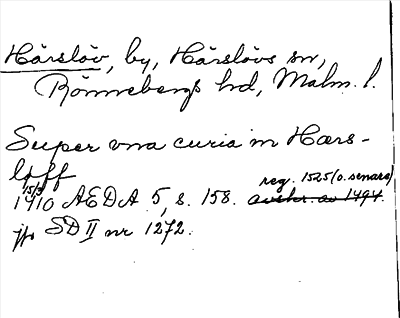 Härslöv, by, Härslövs sn,
Rönnebergs hd, Malm. l.
Super vna curia in Hærs-
løff
15/3 1410 ÆDA 5, s. 158. reg. 1525 (o. senare) avskr. av 1494.
jfr SD II nr 1272.